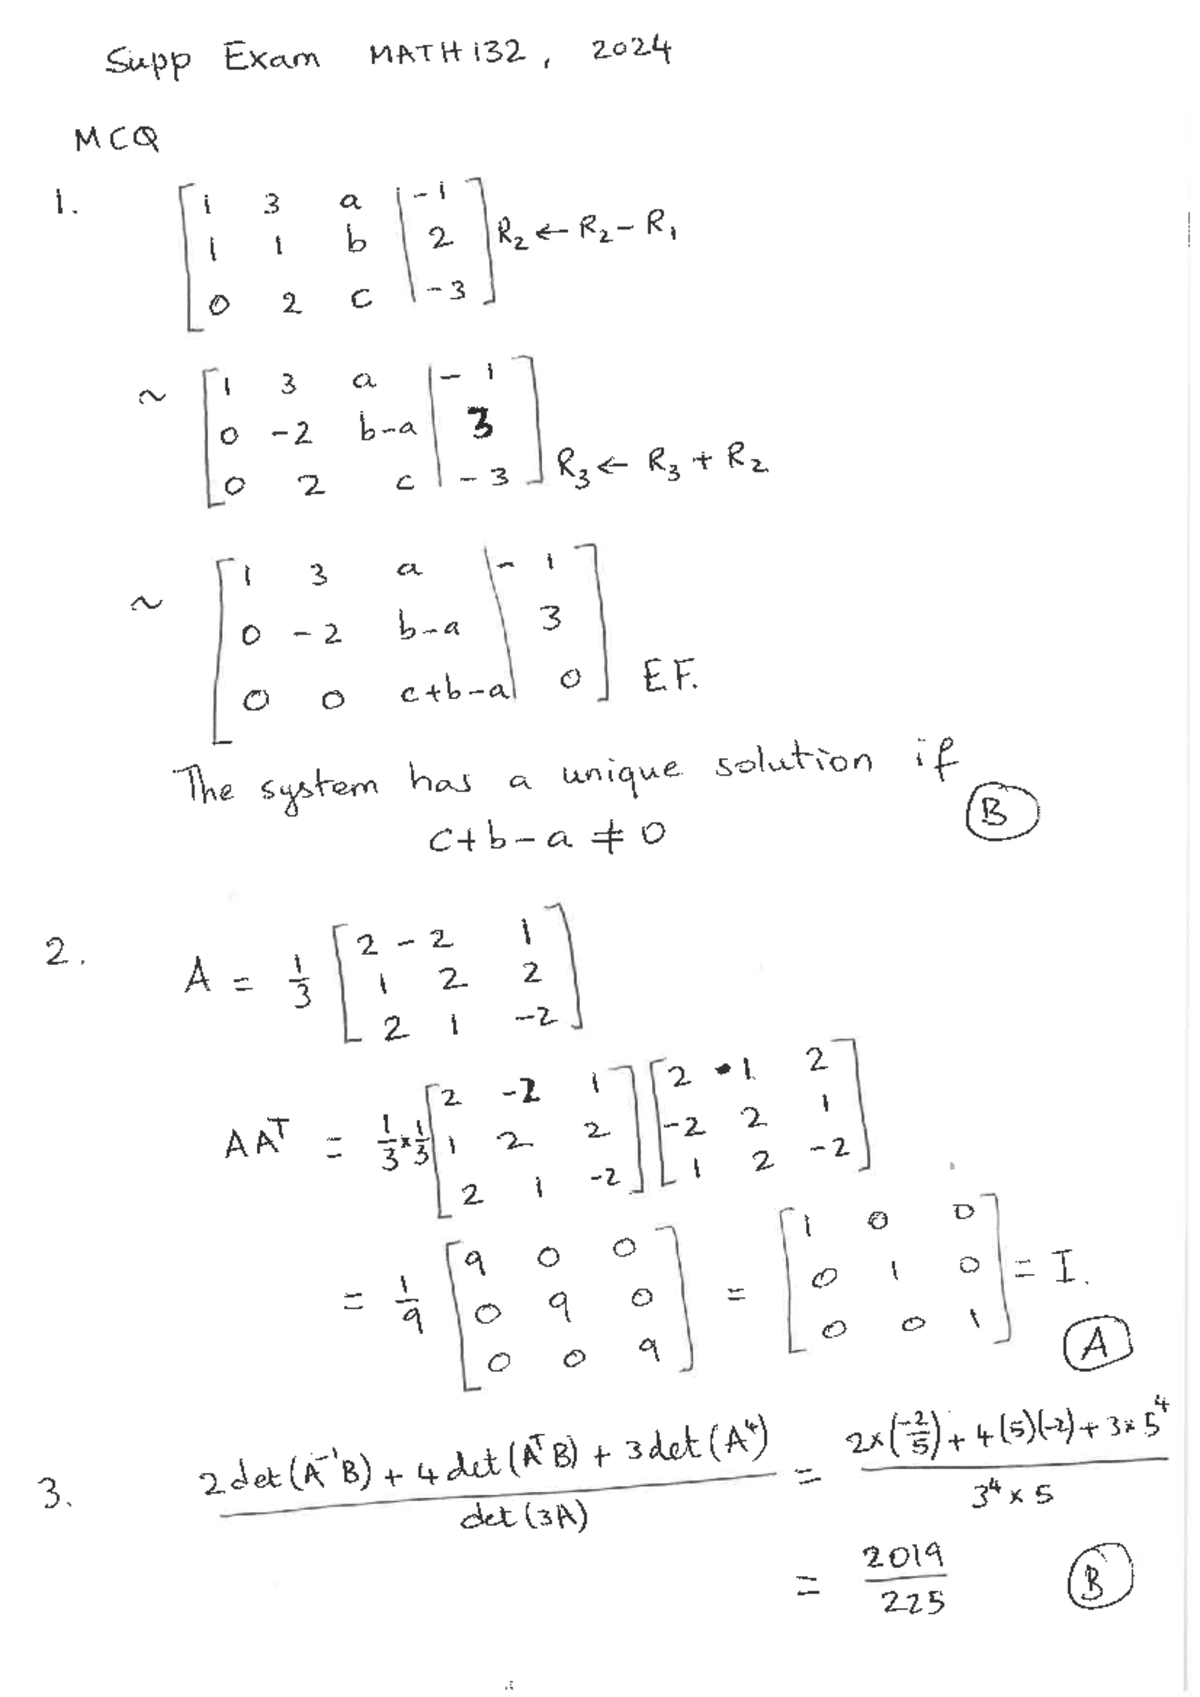 Supp Exam MATH132, 2024
MCQ
1. [1 3 a | -1
1 1 b | 2
0 2 c | -3] R₂ ← R₂ - R₁
~ [1 3 a | -1
0 -2 b-a | 3
0 2 c | -3] R₃ ← R₃ + R₂
~ [1 3 a | -1
0 -2 b-a | 3
0 0 c+b-a | 0] E.F.
The system has a unique solution if
c+b-a ≠ 0 (B)
2. A = 1/3 [2 -2 1
1 2 2
2 1 -2]
AAᵀ = 1/3 × 1/3 [2 -2 1; 1 2 2; 2 1 -2] [2 1 2; -2 2 1; 1 2 -2]
= 1/9 [9 0 0; 0 9 0; 0 0 9] = [1 0 0; 0 1 0; 0 0 1] = I.
(A)
3. (2det(A⁻¹B) + 4det(AᵀB) + 3det(A⁴)) / det(3A) = (2×(-2/5) + 4(5)(-2) + 3×5⁴) / (3⁴×5)
= 2019/225 (B)